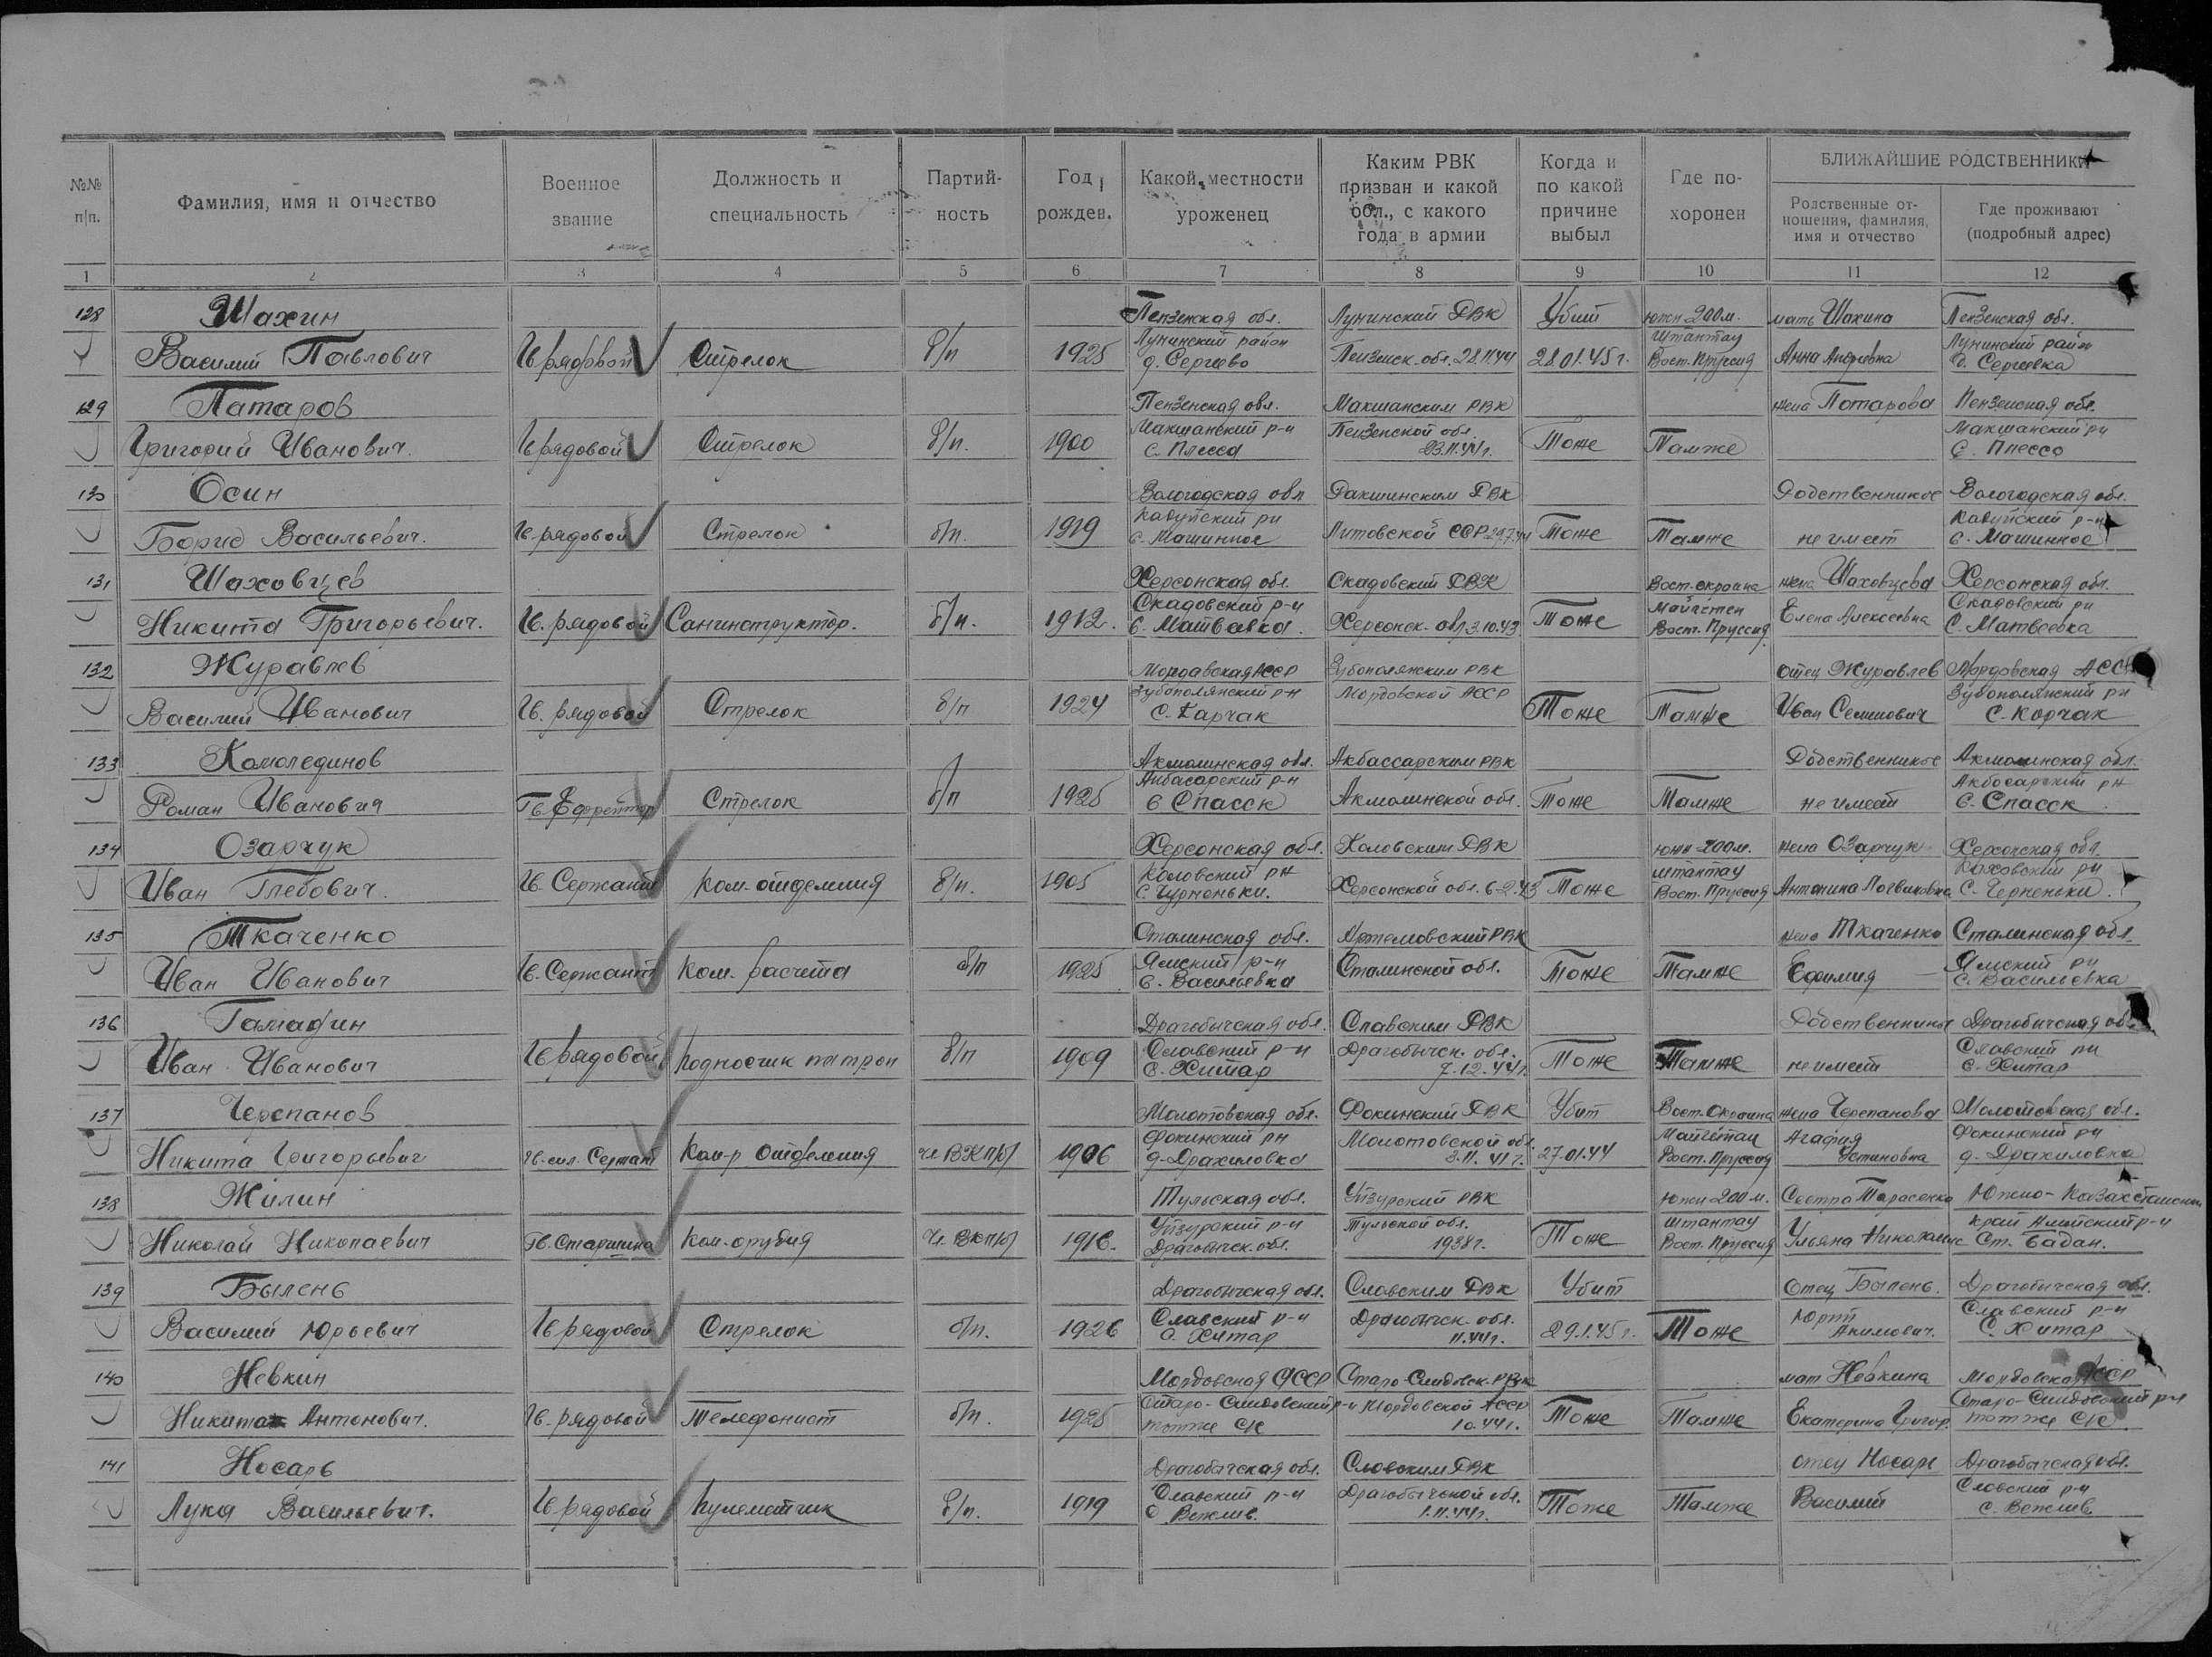 №№ п|п.
Фамилия, имя и отчество
Военное звание
Должность и специальность
Партий-ность
Год рожден.
Какой местности уроженец
Каким РВК призван и какой обл., с какого года в армии
Когда и по какой причине выбыл
Где по-хоронен
БЛИЖАЙШИЕ РОДСТВЕННИКИ
Родственные от-ношения, фамилия, имя и отчество
Где проживают (подробный адрес)
1 2 3 4 5 6 7 8 9 10 11 12
128 Шахин Пензенская обл. Лунинский РВК Убит южн 200м. мать Шахина Пензенская обл.
Лунинский район Штантау Лунинский район
Василий Павлович Гв. рядовой Стрелок б/п 1925 д. Сергеево Пензенск. обл. 28.11.44 28.01.45г. Вост. Пруссия Анна Андреевна д. Сергеевка
129 Патаров Пензенская обл. Макшанским РВК жена Потарова Пензенская обл.
Макшанский р-н Пензенской обл. Макшанский рн
Григорий Иванович. Гв. рядовой Стрелок б/п. 1900 с. Плесса 23.11.44г. Тоже Тамже с. Плессо
130 Осин Вологодская обл Ракишинским РВК Родственников Вологодская обл.
Кадуйский рн Кадуйский р-н
Борис Васильевич. Гв. рядовой Стрелок б/п. 1919 с. Машинное Литовской ССР 29.7.44 Тоже Тамже не имеет с. Машинное
131 Шаховцев Херсонская обл. Скадовский РВК Вост. окраина жена Шаховцева Херсонская обл.
Скадовский р-н Майгетен Скадовский рн
Никита Григорьевич. Гв. рядовой Санинструктор. б/п. 1912. с. Матвеевка Херсонск. обл. 3.10.43 Тоже Вост. Пруссия Елена Алексеевна с. Матвеевка
132 Журавлев Мордавская АССР Зубополянским РВК отец Журавлев Мордовская АССР
Зубополянский р-н Мордовской АССР Зубополянский рн
Василий Иванович Гв. рядовой Стрелок б/п 1924 с. Карчак Тоже Тамже Иван Семенович с. Корчак
133 Комолединов Акмолинская обл. Акбассарским РВК Родственников Акмолинская обл.
Акбасарский р-н Акбосарский рн
Роман Иванович Гв. Ефрейтор Стрелок б/п 1925 с Спасск Акмолинской обл. Тоже Тамже не имеет с. Спасск
134 Озарчук Херсонская обл. Каховским РВК южн 200м. жена Озарчук Херсонская обл.
Каховский рн Штантау Каховский рн
Иван Глебович Гв. Сержант Ком. отделения б/п. 1905 с. Чурненьки. Херсонской обл. 6-2-43 Тоже Вост. Пруссия Антонина с. Черненьки.
135 Ткаченко Сталинская обл. Артемовский РВК жена Ткаченко Сталинская обл.
Ямский р-н Ямский рн
Иван Иванович Гв. Сержант Ком. расчета б/п 1925 с. Васильевка Сталинской обл. Тоже Тамже Ефимия с. Васильевка
136 Драгобычская обл. Славским РВК Родственников Драгобычская обл.
Славский р-н Драгобычск. обл. Славский рн
Иван Иванович Гв. рядовой подносчик патрон б/п 1909 с. Хитар 7.12.44г. Тоже Тамже не имеет с. Хитар
137 Черепанов Молотовская обл. Фокинский РВК Убит Вост. окраина жена Черепанова Молотовская обл.
Фокинский рн Молотовской обл. Майгетен Агафия Фокинский рн
Никита Григорьевич Гв. мл. Сержант Ком-р отделения чл ВКП(б) 1906 д. Драхиловка 3.11.41г. 27.01.44 Вост. Пруссия Устиновна д. Драхиловка
138 Жилин Тульская обл. РВК южн 200м. Сестра Тарасенко Южно-Казахстанский
р-н Тульской обл. Штантау край р-н
Николай Николаевич Гв. Старшина Ком. орудия Чл. ВКП(б) 1916. Драгобычск. обл. 1938г. Тоже Вост. Пруссия Ульяна ст. Бадан.
139 Былень Драгобычская обл. Славским РВК Убит Отец Былень. Драгобычская обл.
Славский р-н Драгобычск. обл. Славский р-н
Василий Юрьевич Гв. рядовой Стрелок б/п. 1926 с. Хитар 11.44г. 29.1.45г. Тоже Акимович. с. Хитар
140 Невкин Мордовская АССР Старо-Синдовск. РВК мат Невкина Мордовская АССР
Старо-Синдовский р-н Мордовской АССР Старо-Синдовский р-н
Никита Антонович. Гв. рядовой Телефонист б/п. 1925 тотже с/с 10.44г. Тоже Тамже Екатерина Григор. тотже с/с
141 Носарь Драгобычская обл. Славским РВК отец Носарь Драгобычская обл.
Славский р-н Драгобычской обл. Славский р-н
Лука Васильевич. Гв. рядовой пулеметчик б/п. 1919 1.11.44г. Тоже Тамже Василий